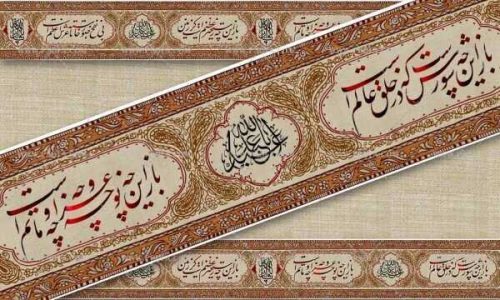 باز این چه رستخیز عظیم است کز زمین
بی نفخ صور خاسته تا عرش اعظم است
باز این چه شورش است که در خلق عالم است
باز این چه نوحه و چه عزا و چه ماتم است
باز این چه شورش است که در خلق عالم است
باز این چه نوحه و چه عزا و چه ماتم است
باز این چه رستخیز عظیم است کز زمین